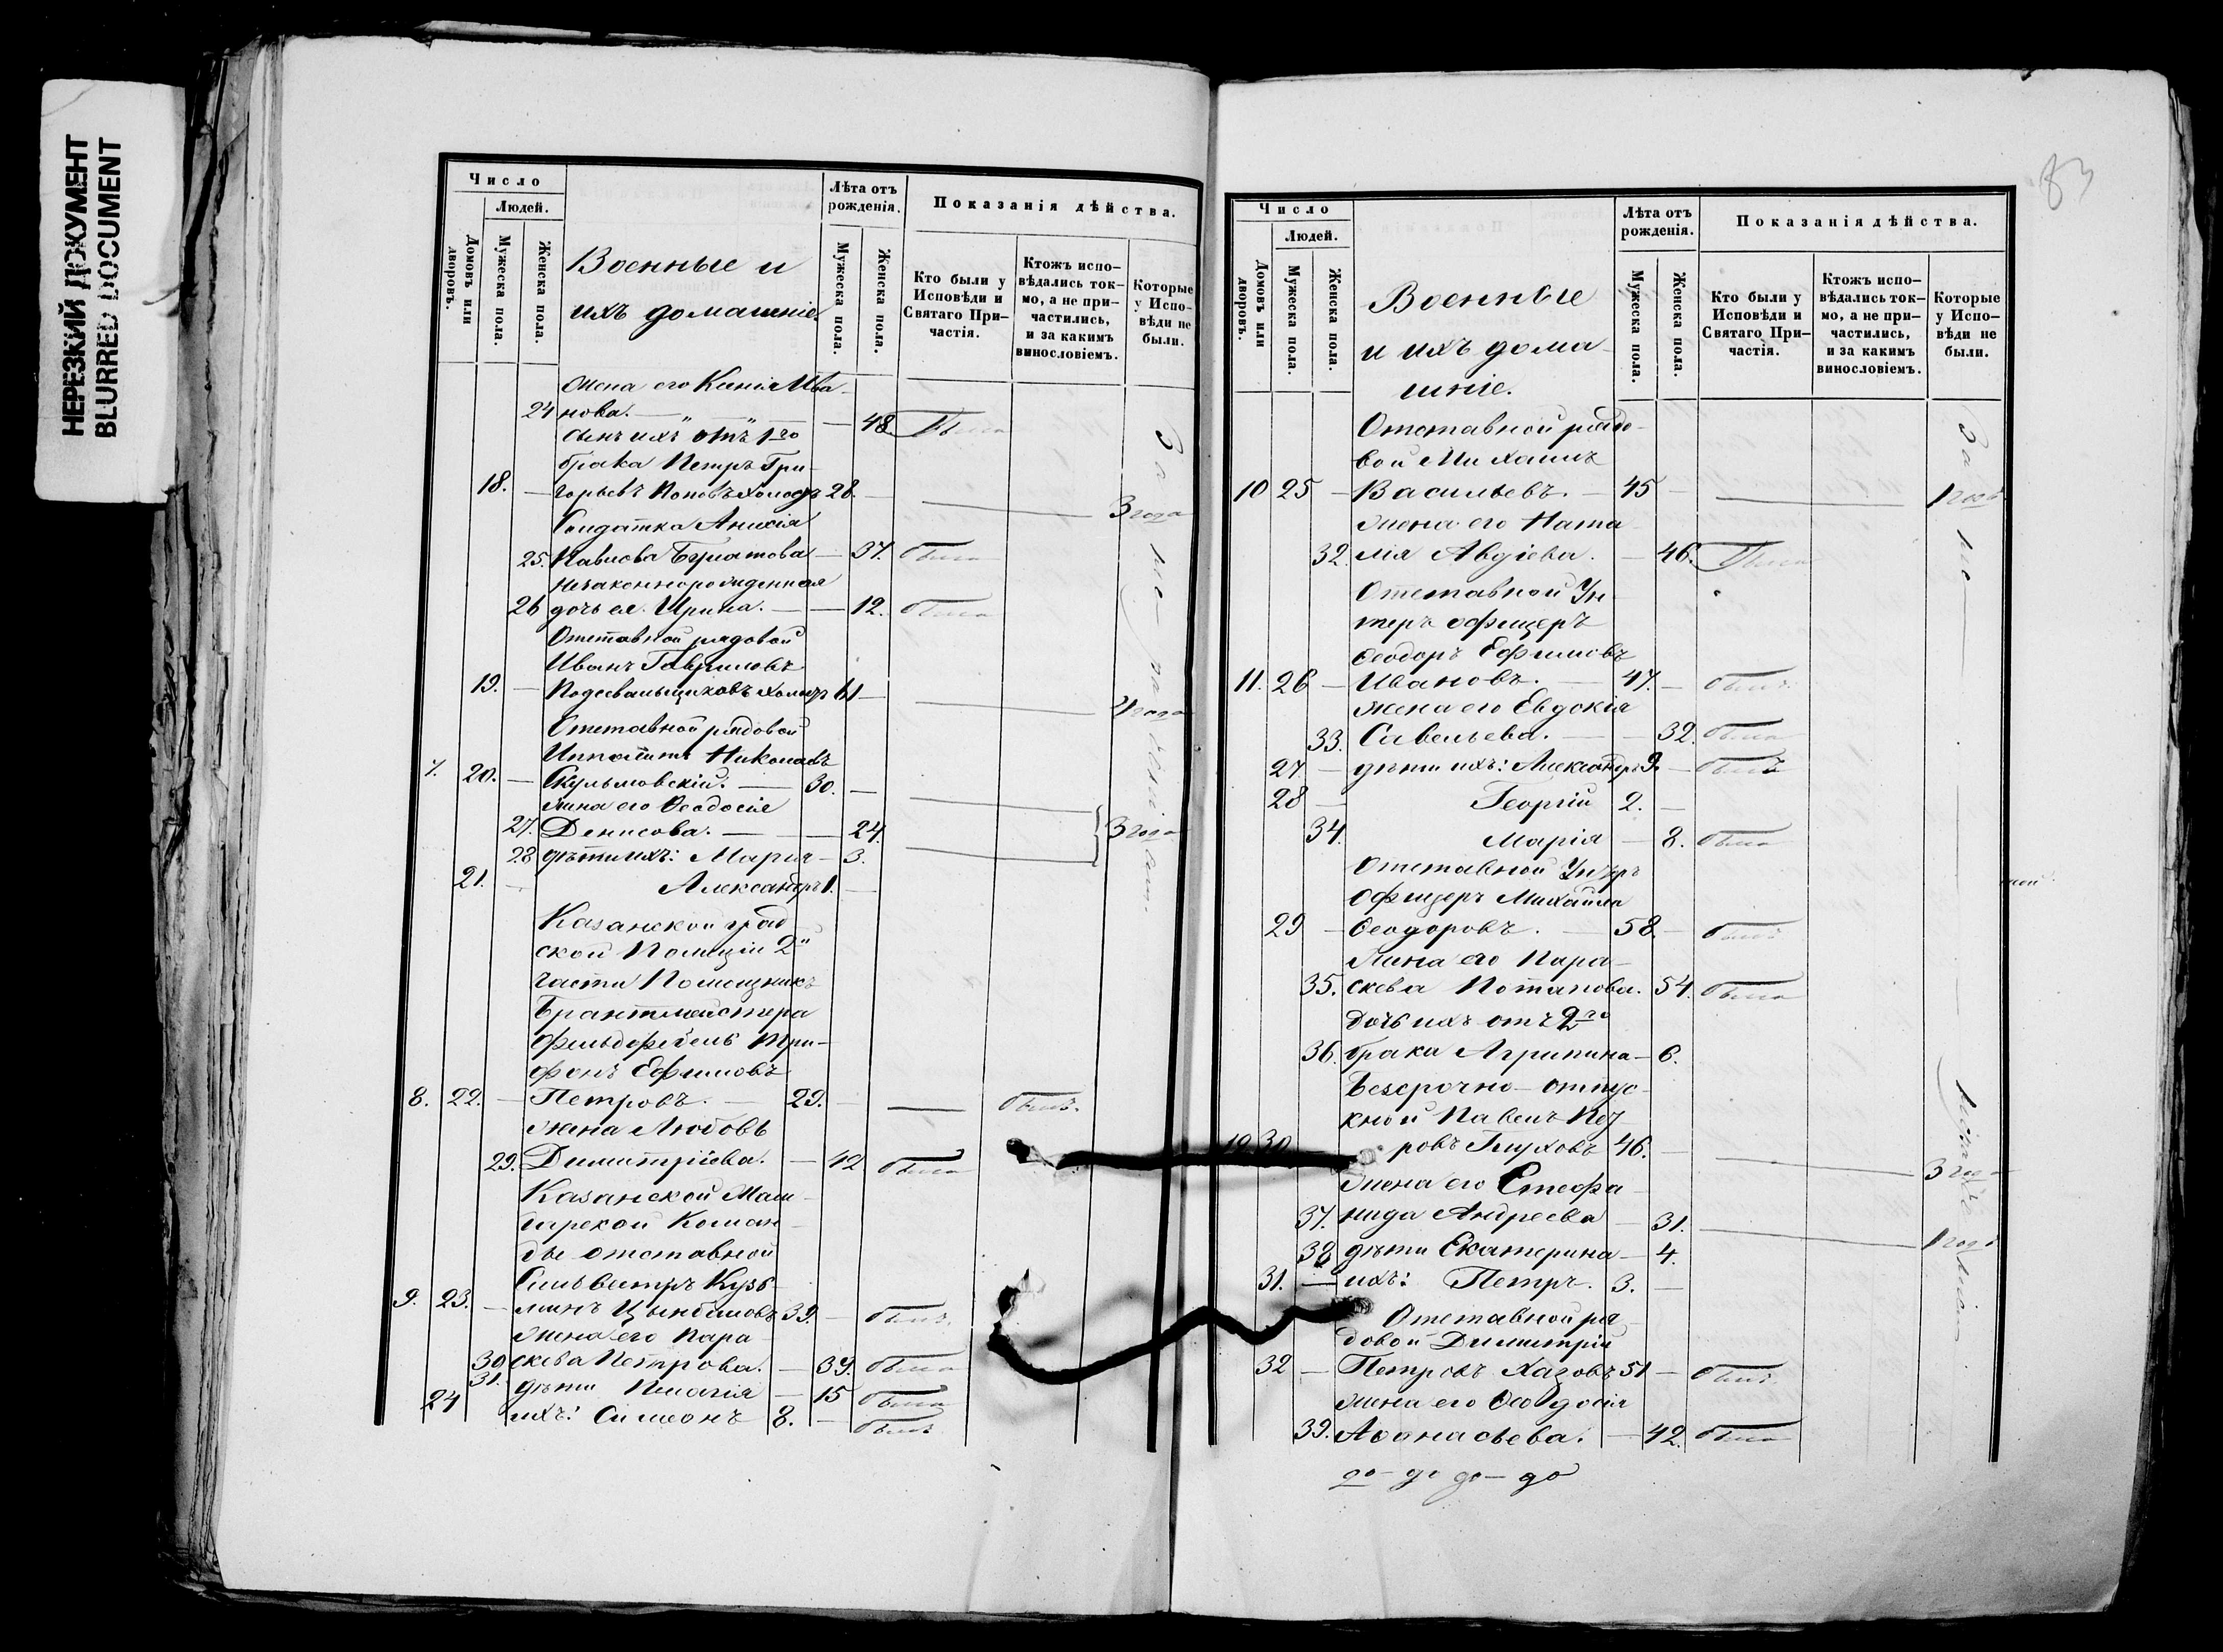 НЕРЕЗКИЙ ДОКУМЕНТ
BLURRED DOCUMENT
Число
Людей.
Домовъ или дворовъ.
Мужеска пола.
Женска пола.
Военные и
ихъ домашніе.
Лѣта отъ рожденія.
Мужеска пола.
Женска пола.
Показанія дѣйства.
Кто были у Исповѣди и Святаго Причастія.
Ктожъ исповѣдались токмо, а не причастились, и за какимъ винословіемъ.
Которые у Исповѣди не были.
жена его Ксенія Ива-
24 нова. — — 48 Была
сынъ ихъ отъ 1го
брака Петръ Гри-
18. — горьевъ Поповъ холостъ 28. — 3 года
Солдатка Анисія
25. Павлова Булатова — 37. была
незаконнорожденная
26 дочь ея Ирина. — — 12. была
Отставной рядовой
Иванъ Гавриловъ
19. — холостъ 61 —
Отставной рядовой
Ипполитъ Николаевъ
7. 20. — — 30. —
жена его Ѳеодосія
27. Денисова. — — 24. 3 года
28 дѣти ихъ: Марія — 3.
21. — Александръ 1. —
Казанской град-
ской Полиціи 2й
части Помощникъ
Брантмейстера
фельдфебель Три-
фонъ Ефимовъ
8. 22. — Петровъ. — 29. — былъ.
жена Любовь
29. Димитріева. — 42 была
Казанской Мас-
терской Коман-
ды отставной
Сильвестръ Кузь-
9. 23. — минъ 39. — былъ.
жена его Пара-
30 скева Петрова. — 39. была
31. дѣти Пелагія — 15 была
24 ихъ: Симеонъ 8. — былъ
83
Число
Людей.
Домовъ или дворовъ.
Мужеска пола.
Женска пола.
Военные
и ихъ дома-
шніе.
Лѣта отъ рожденія.
Мужеска пола.
Женска пола.
Показанія дѣйства.
Кто были у Исповѣди и Святаго Причастія.
Ктожъ исповѣдались токмо, а не причастились, и за какимъ винословіемъ.
Которые у Исповѣди не были.
Отставной рядо-
вой Михаилъ
10 25 — Васильевъ. — 45 — 1 годъ
жена его Ната-
32. лія Авдіева. — 46. Была
Отставной Ун-
теръ офицеръ
Ѳеодоръ Ефимовъ
11. 26 — Ивановъ. — 47. — былъ.
жена его Евдокія
33. Савельева. — — 32. была
27 — дѣти ихъ: Александръ 9. — былъ
28 — Георгій 2. —
34. Марія — 8. была
Отставной Унтеръ
Офицеръ Михаилъ
29 — Ѳеодоровъ. — 58. — былъ
Жена его Пара-
35. скева Потапова. 54. была
дочь ихъ отъ 2го
36. брака Агрипина — 6.
Безсрочно-отпус-
кной Павелъ Пет-
12 30 ровъ Глуховъ 46. — 3 года
Жена его Стефа-
37. нида Андреева — 31. 1 годъ
38 дѣти Екатерина — 4.
31. — ихъ: Петръ. 3. —
Отставной ря-
довой Димитрій
32 — Петровъ Хазовъ 51 — былъ.
жена его Ѳеодосія
39. Аѳанасьева. — 42. была